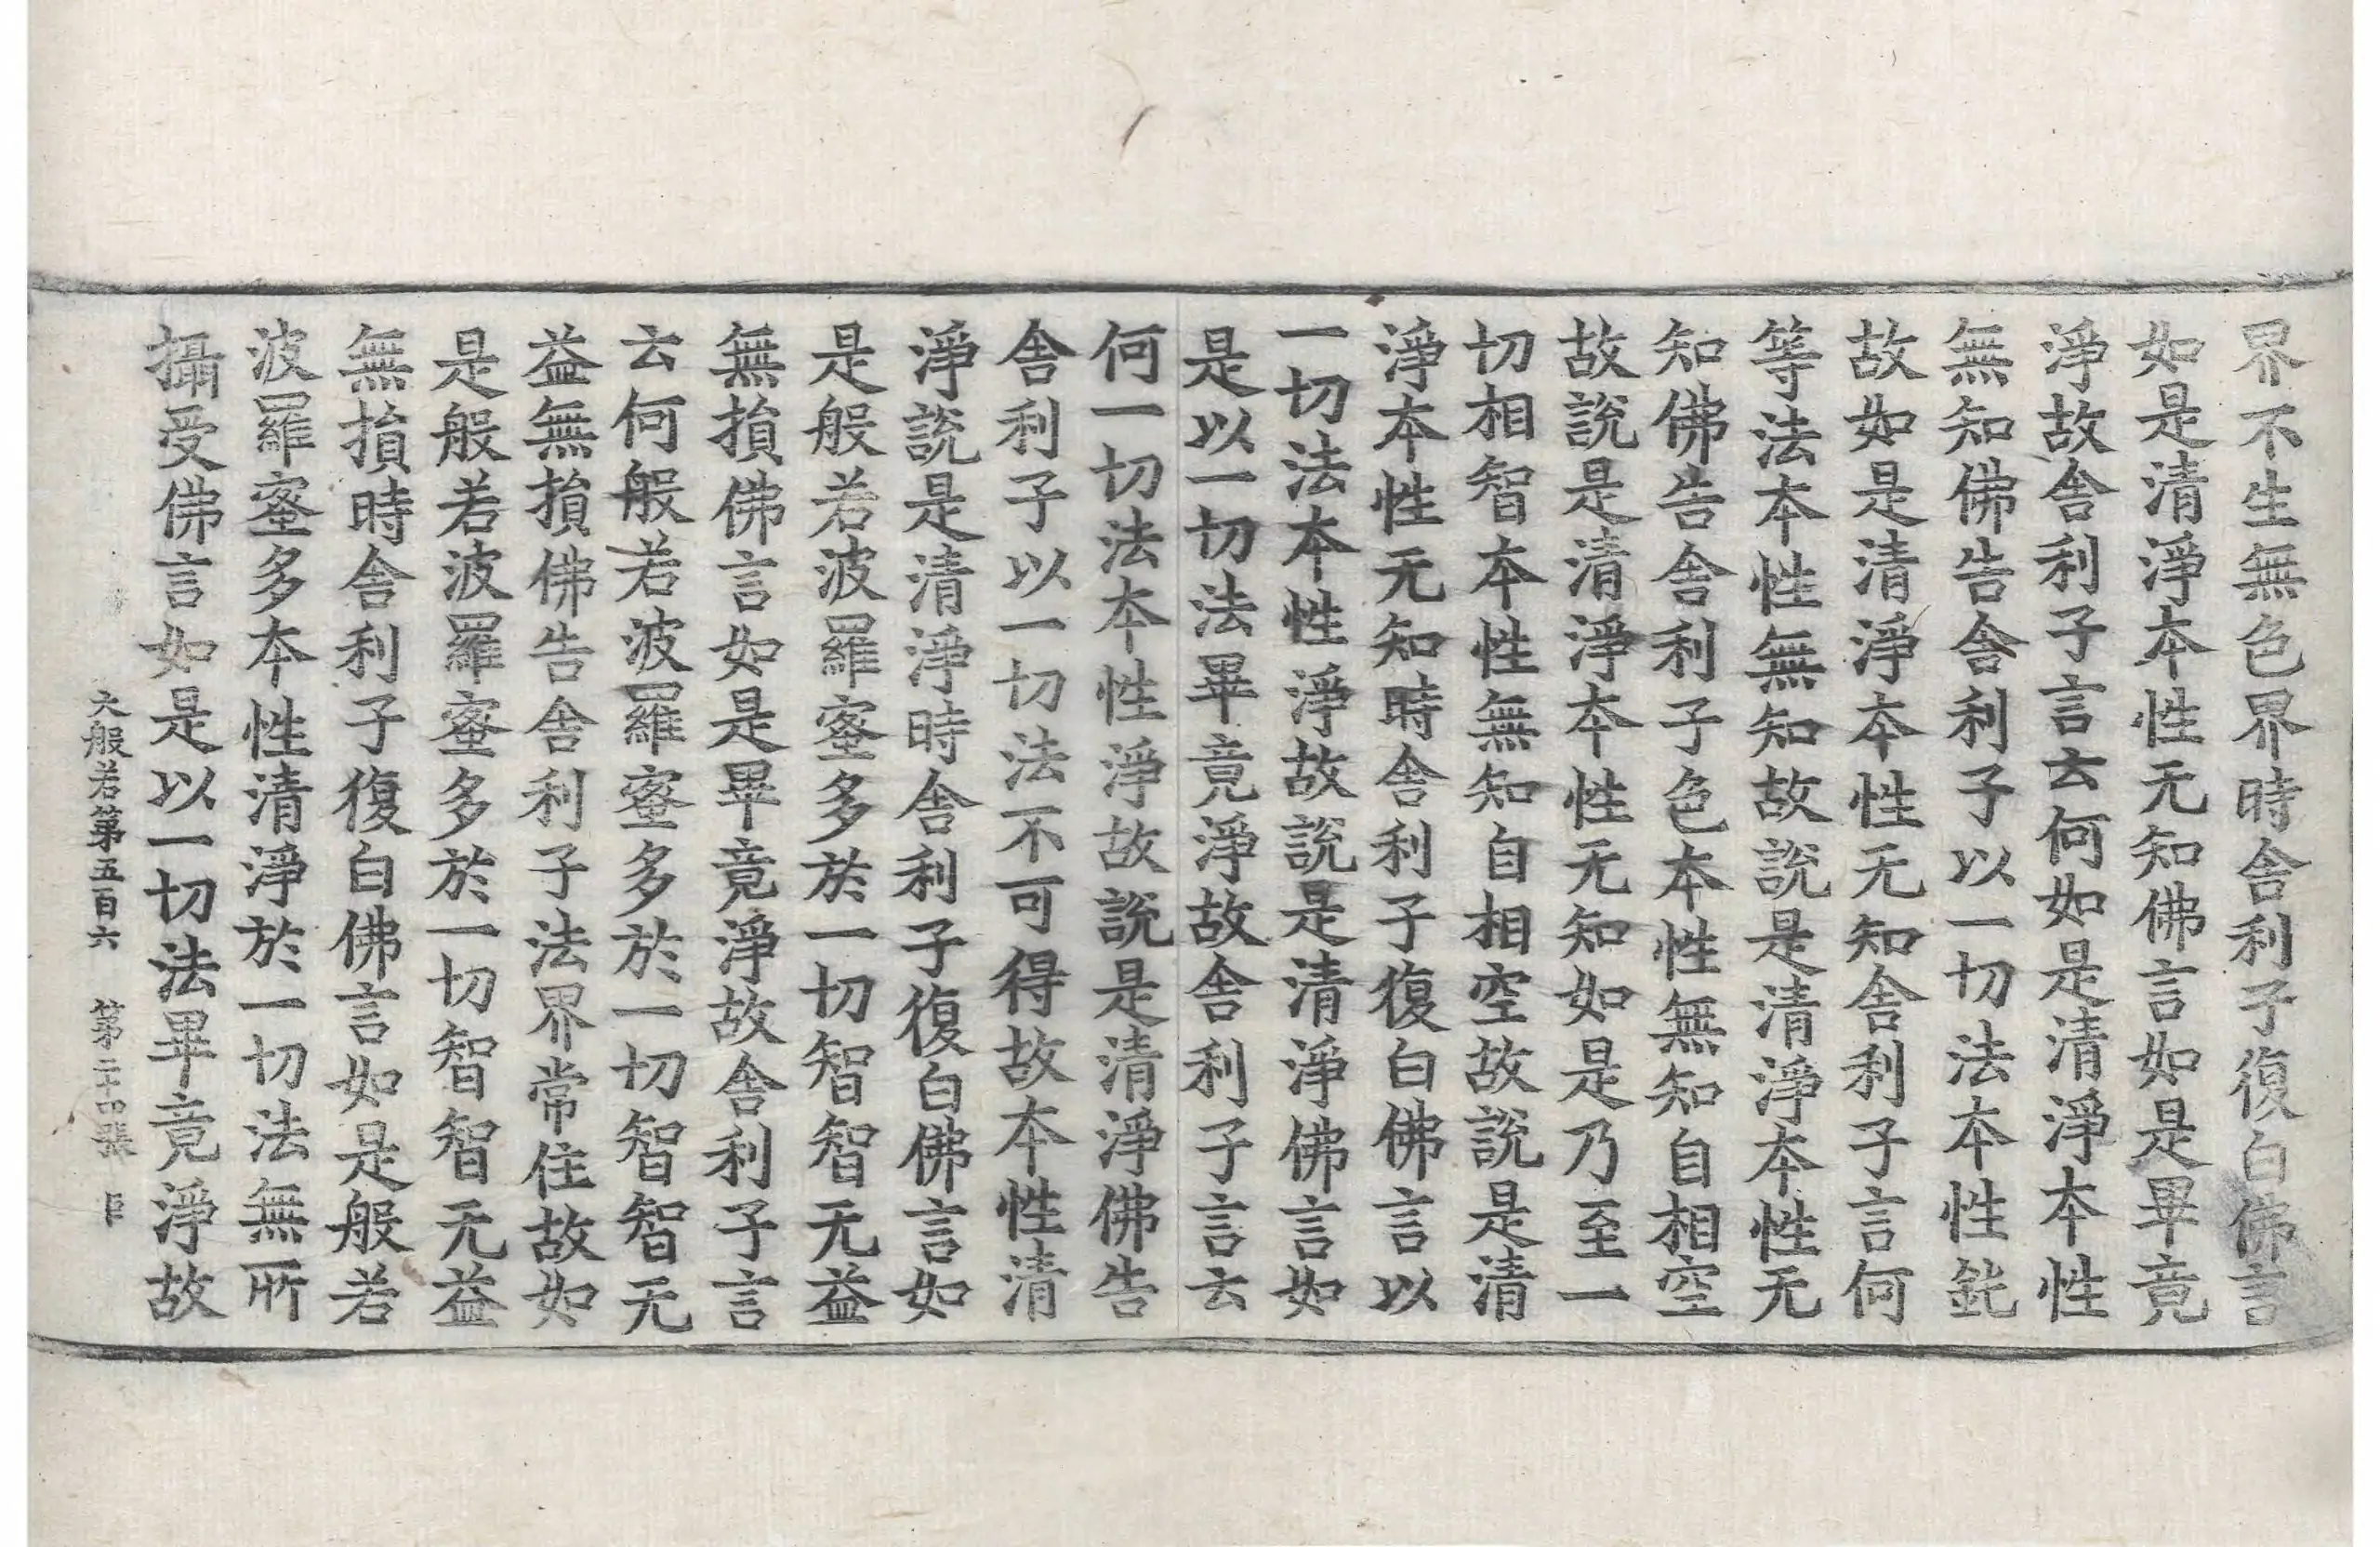 界不生無色界時舍利子復白佛言
如是清淨本性无知佛言如是畢竟
淨故舍利子言云何如是清淨本性
無知佛告舍利子以一切法本性鈍
故如是清淨本性无知舍利子言何
等法本性無知故說是清淨本性无
知佛告舍利子色本性無知自相空
故說是清淨本性无知如是乃至一
切相智本性無知自相空故說是清
淨本性无知時舍利子復白佛言以
一切法本性淨故說是清淨佛言如
是以一切法畢竟淨故舍利子言云
何一切法本性淨故說是清淨佛告
舍利子以一切法不可得故本性清
淨說是清淨時舍利子復白佛言如
是般若波羅蜜多於一切智智无益
無損佛言如是畢竟淨故舍利子言
云何般若波羅蜜多於一切智智无
益無損佛告舍利子法界常住故如
是般若波羅蜜多於一切智智无益
無損時舍利子復白佛言如是般若
波羅蜜多本性清淨於一切法無所
攝受佛言如是以一切法畢竟淨故
大般若第五百六 第二十四張